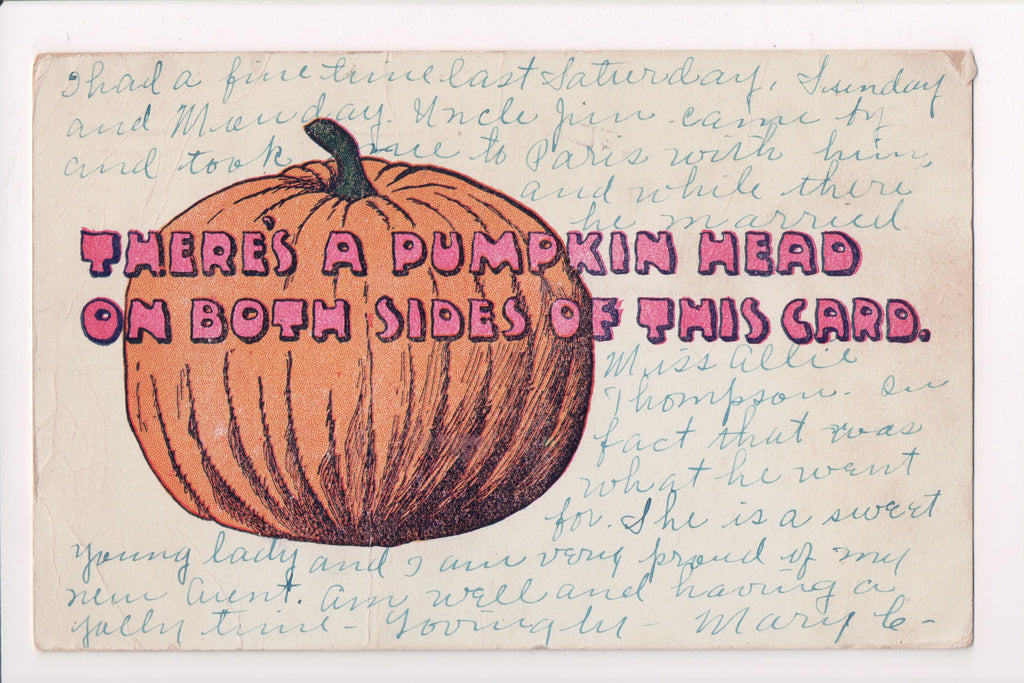 I had a fine time last Saturday, Sunday
and Monday. Uncle Jim came by
and took me to Paris with him,
and while there
he married
THERE'S A PUMPKIN HEAD
ON BOTH SIDES OF THIS CARD.
Miss Allie
Thompson. In
fact that was
what he went
for. She is a sweet
young lady and I am very proud of my
new Aunt. Am well and having a
jolly time - Lovingly - Mary C-